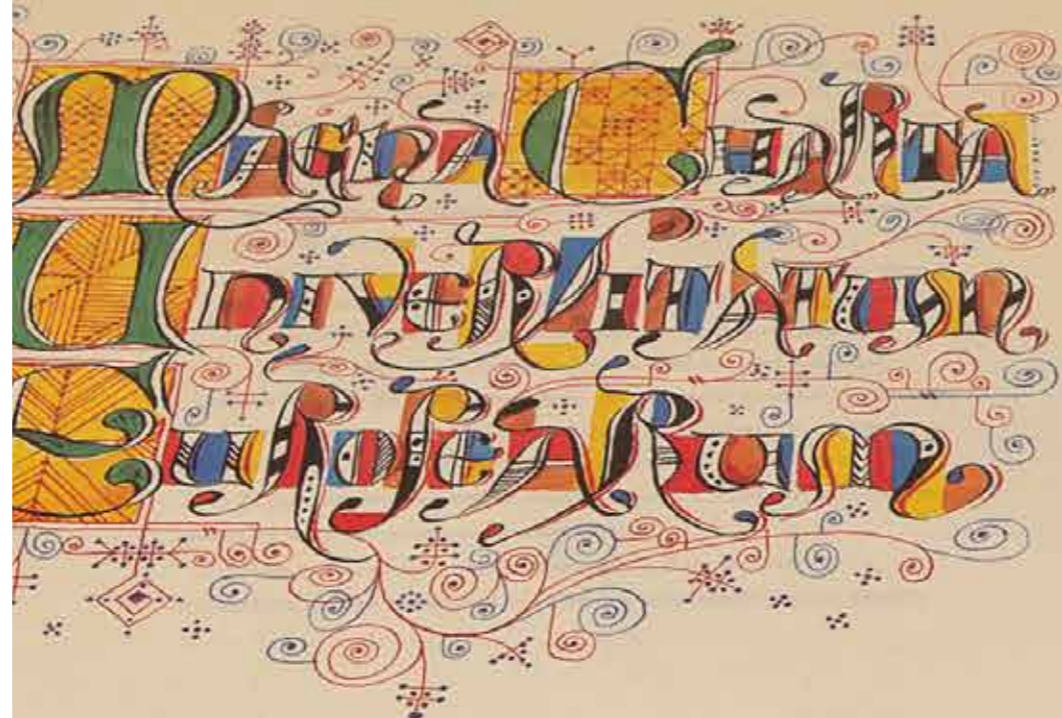 Magna Charta
Universitatum
Europearum